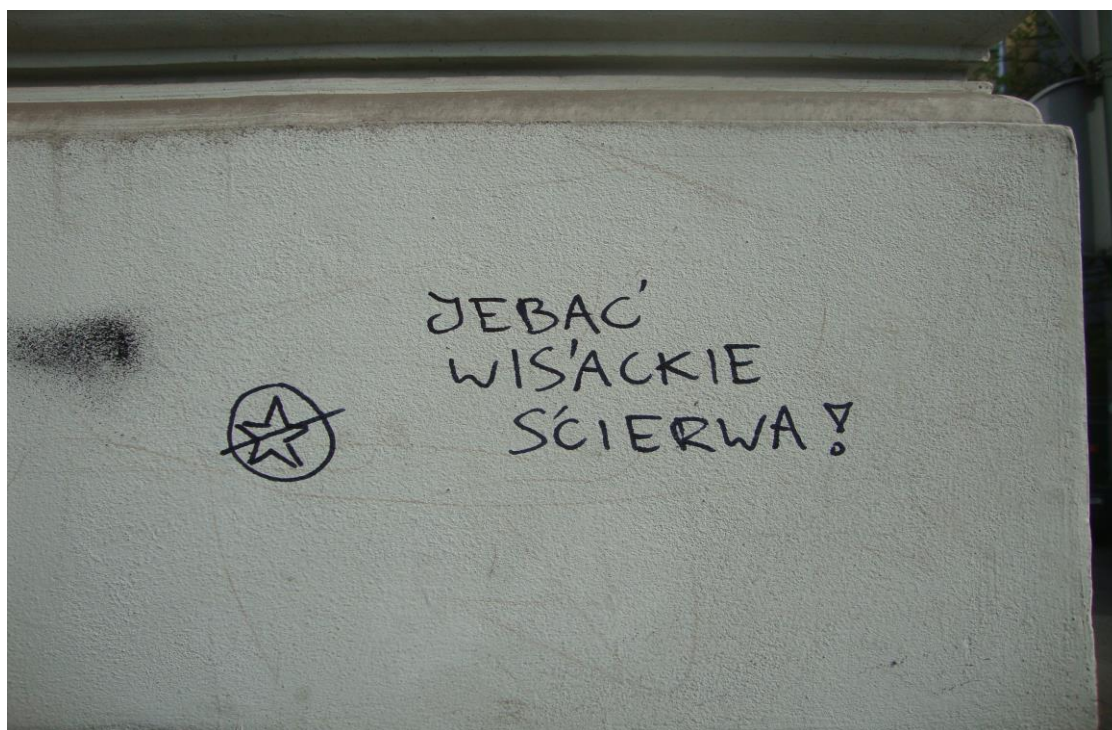 JEBAĆ
WIŚACKIE
ŚCIERWA!